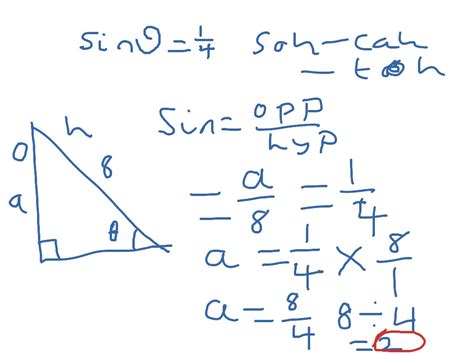 sinθ = 1/4 Soh-cah
- toah
h
Sin = opp/hyp
O
8
a
θ
= a/8 = 1/4
a = 1/4 × 8/1
a = 8/4 8 ÷ 4
= 2